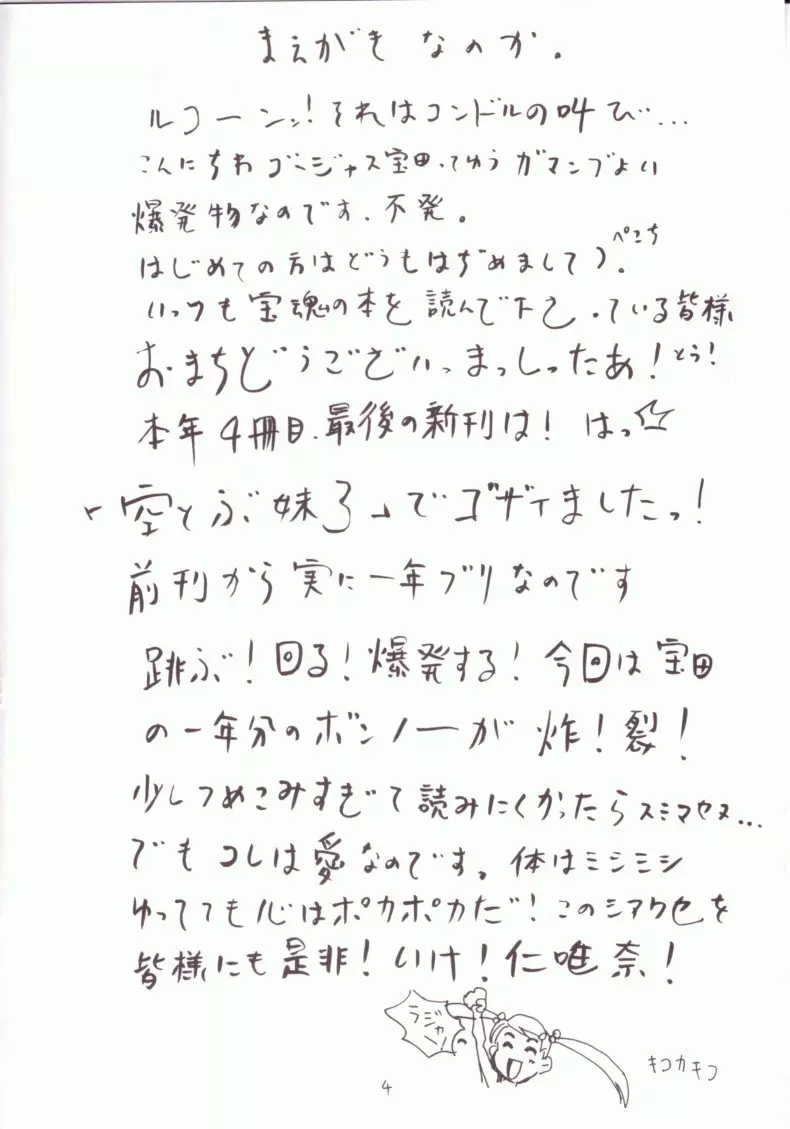 まえがきなのか。
ルコーンッ!それはコンドルの叫び…
こんにちわゴージャス宝田ってゆうガマンヅよい
爆発物なのです、不発。
はじめての方はどうもはぢめまして)。ぺこち
いっつも宝魂の本を読んで下さっている皆様
おまちどうございっまっしったあ!とう!
本年4冊目、最後の新刊は!はっ
「空とぶ妹3」でゴザイましたっ!
前刊から実に一年ブリなのです
跳ぶ!回る!爆発する!今回は宝田
の一年分のボンノーが炸!裂!
少しつめこみすぎて読みにくかったらスミマセヌ…
でもコレは愛なのです。体はミシミシ
ゆってても心はポカポカだ!このシアワセを
皆様にも是非!いけ!仁唯奈!
ラジャー!
キコカキコ
4